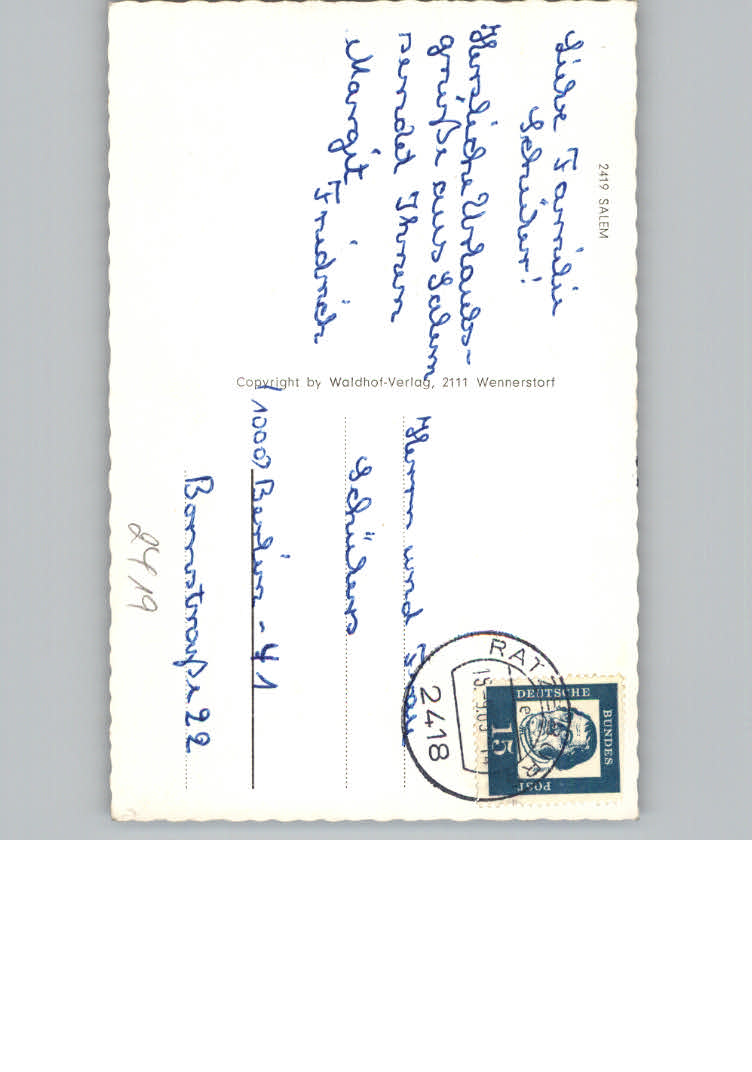 2419 SALEM
Liebe Familie
Schükers!
Herzliche Urlaubs-
grüße aus Salem
sendet Ihnen
Margit
Friedrich
Copyright by Waldhof-Verlag, 2111 Wennerstorf
Herrn und Frau
Schükers
1000 Berlin-41
Bornstraße 22
2419
2418
DEUTSCHE
BUNDES
POST
15